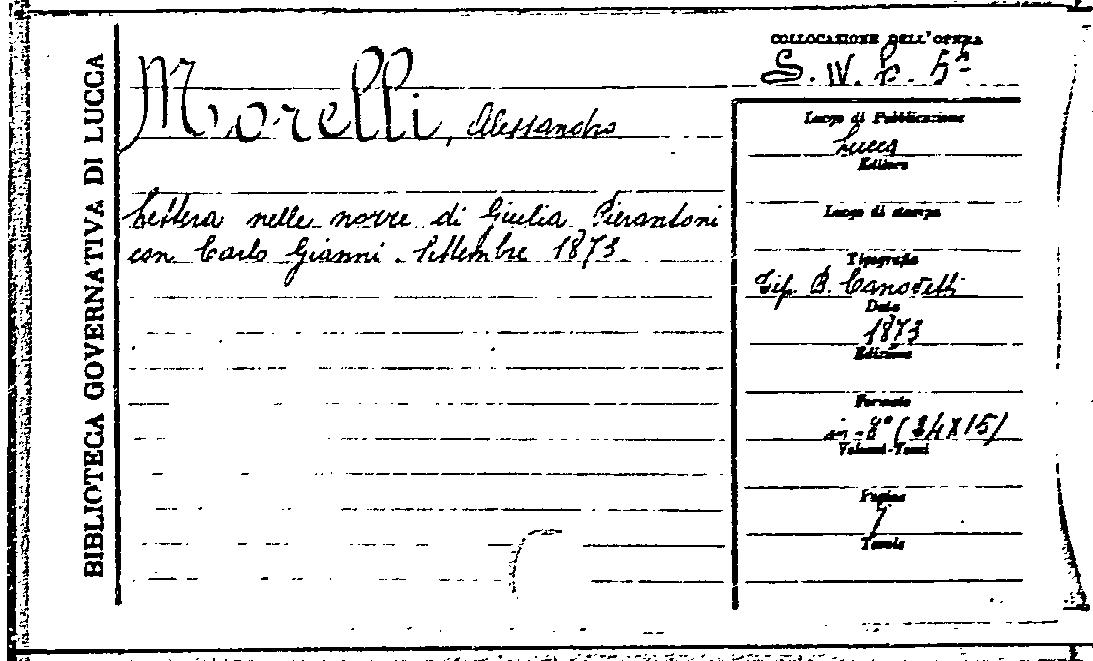 BIBLIOTECA GOVERNATIVA DI LUCCA
Morelli, Alessandro
Lettera nelle nozze di Giulia Pierantoni
con Carlo Gianni. Settembre 1873.
COLLOCAZIONE DELL'OPERA
S. IV. b. 5ª
Luogo di Pubblicazione
Lucca
Editore
Luogo di stampa
Tipografia
Tip. B. Canovetti
Data
1873
Edizione
Formato
in-8° (24X15)
Volumi-Tomi
Pagine
7
Tavole